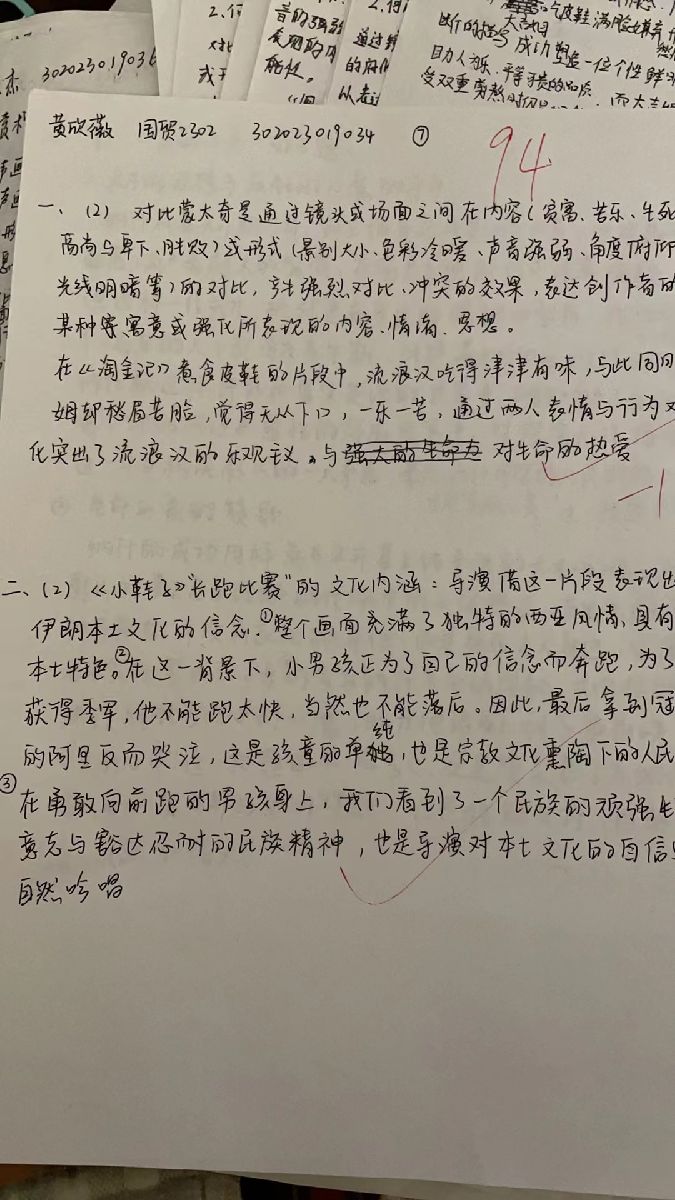 2.何
对比
或
杰 302023019036
能性。
2.何
通过
的府
从者
皮鞋,满脸
大吉姆
断的描写 成功塑造一位个性鲜
助人为乐、平等
受双重
黄欣薇 国贸2302 302023019034 ⑦
94
一、(2) 对比蒙太奇是通过镜头或场面之间在内容(贫富、苦乐、生死
高尚与卑下、胜败)或形式(景别大小、色彩冷暖、声音强弱、角度俯仰
光线明暗等)的对比,产生强烈对比、冲突的效果,表达创作者的
某种寓意或强化所表现的内容、情绪、思想。
在《淘金记》煮食皮鞋的片段中,流浪汉吃得津津有味,与此同时
姆却愁眉苦脸,觉得无从下口,一乐一苦,通过两人表情与行为对
化突出了流浪汉的乐观主义。与强大的生命力对生命的热爱
-1
二、(2)《小鞋子》"长跑比赛"的文化内涵:导演借这一片段表现出
伊朗本土文化的信念.①整个画面充满了独特的西亚风情、具有
本土特色。②在这一背景下,小男孩正为了自己的信念而奔跑,为了
获得季军,他不能跑太快,当然也不能落后。因此,最后拿到冠
的阿里反而哭泣,这是孩童的单纯,也是宗教文化熏陶下的人民
③在勇敢向前跑的男孩身上,我们看到了一个民族的顽强生
意志与豁达忍耐的民族精神,也是导演对本土文化的自信
自然吟唱